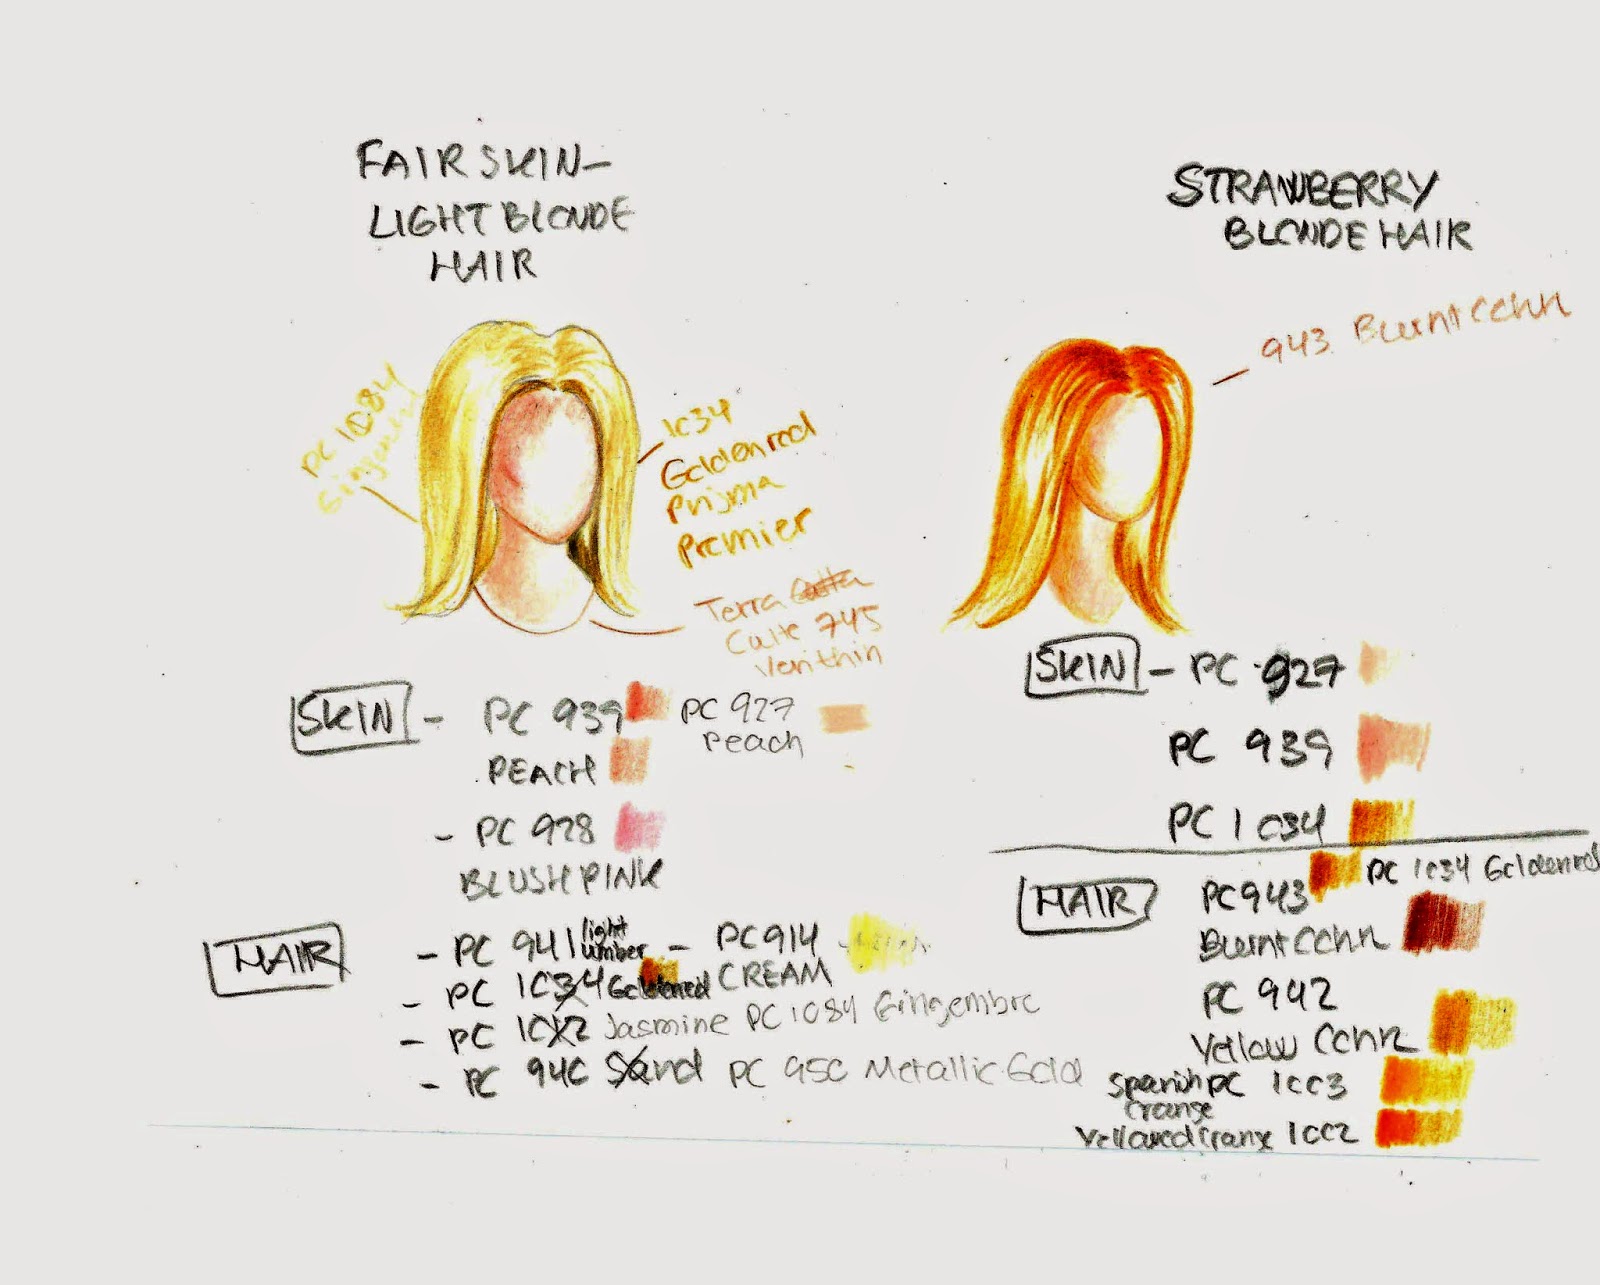 FAIR SKIN-
LIGHT BLONDE
HAIR
PC 1084
Gingembre
1034
Goldenrod
Prisma
Premier
Terra
Cuite 745
Verithin
SKIN - PC 939
PC 927
Peach
PEACH
- PC 928
BLUSH PINK
HAIR
- PC 941 light
umber
- PC 914
CREAM
- PC 1034 Goldenrod
- PC 1012 Jasmine PC 1084 Gingembre
- PC 940 Sand PC 950 Metallic Gold
STRAWBERRY
BLONDE HAIR
943 Burnt Ochre
SKIN - PC 927
PC 939
PC 1034
HAIR
PC 943
PC 1034 Goldenrod
Burnt Ochre
PC 942
Yellow Ochre
Spanish PC 1003
Orange
Yellowed Orange 1002